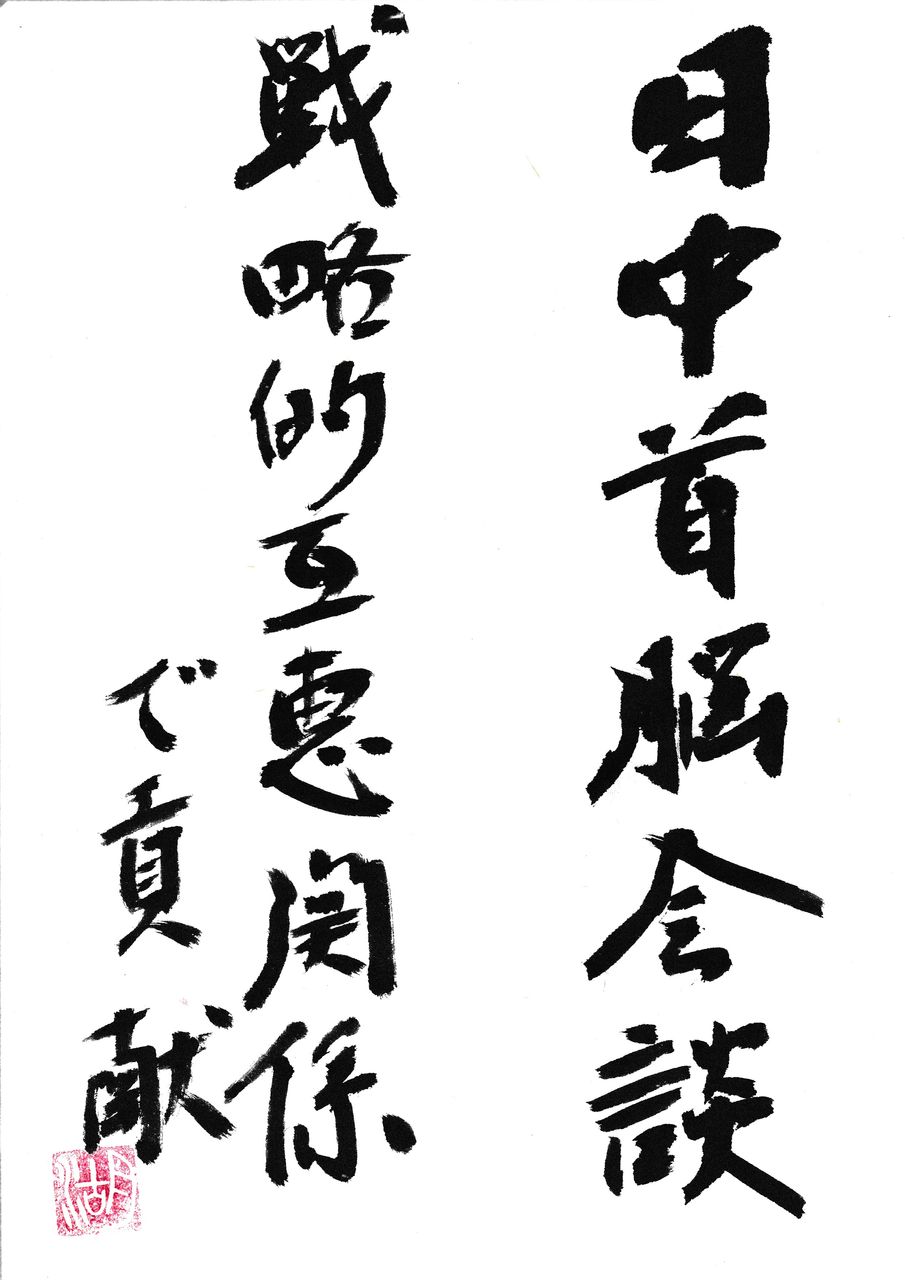 日中首脳会談
戦略的互恵関係
で貢献
湖